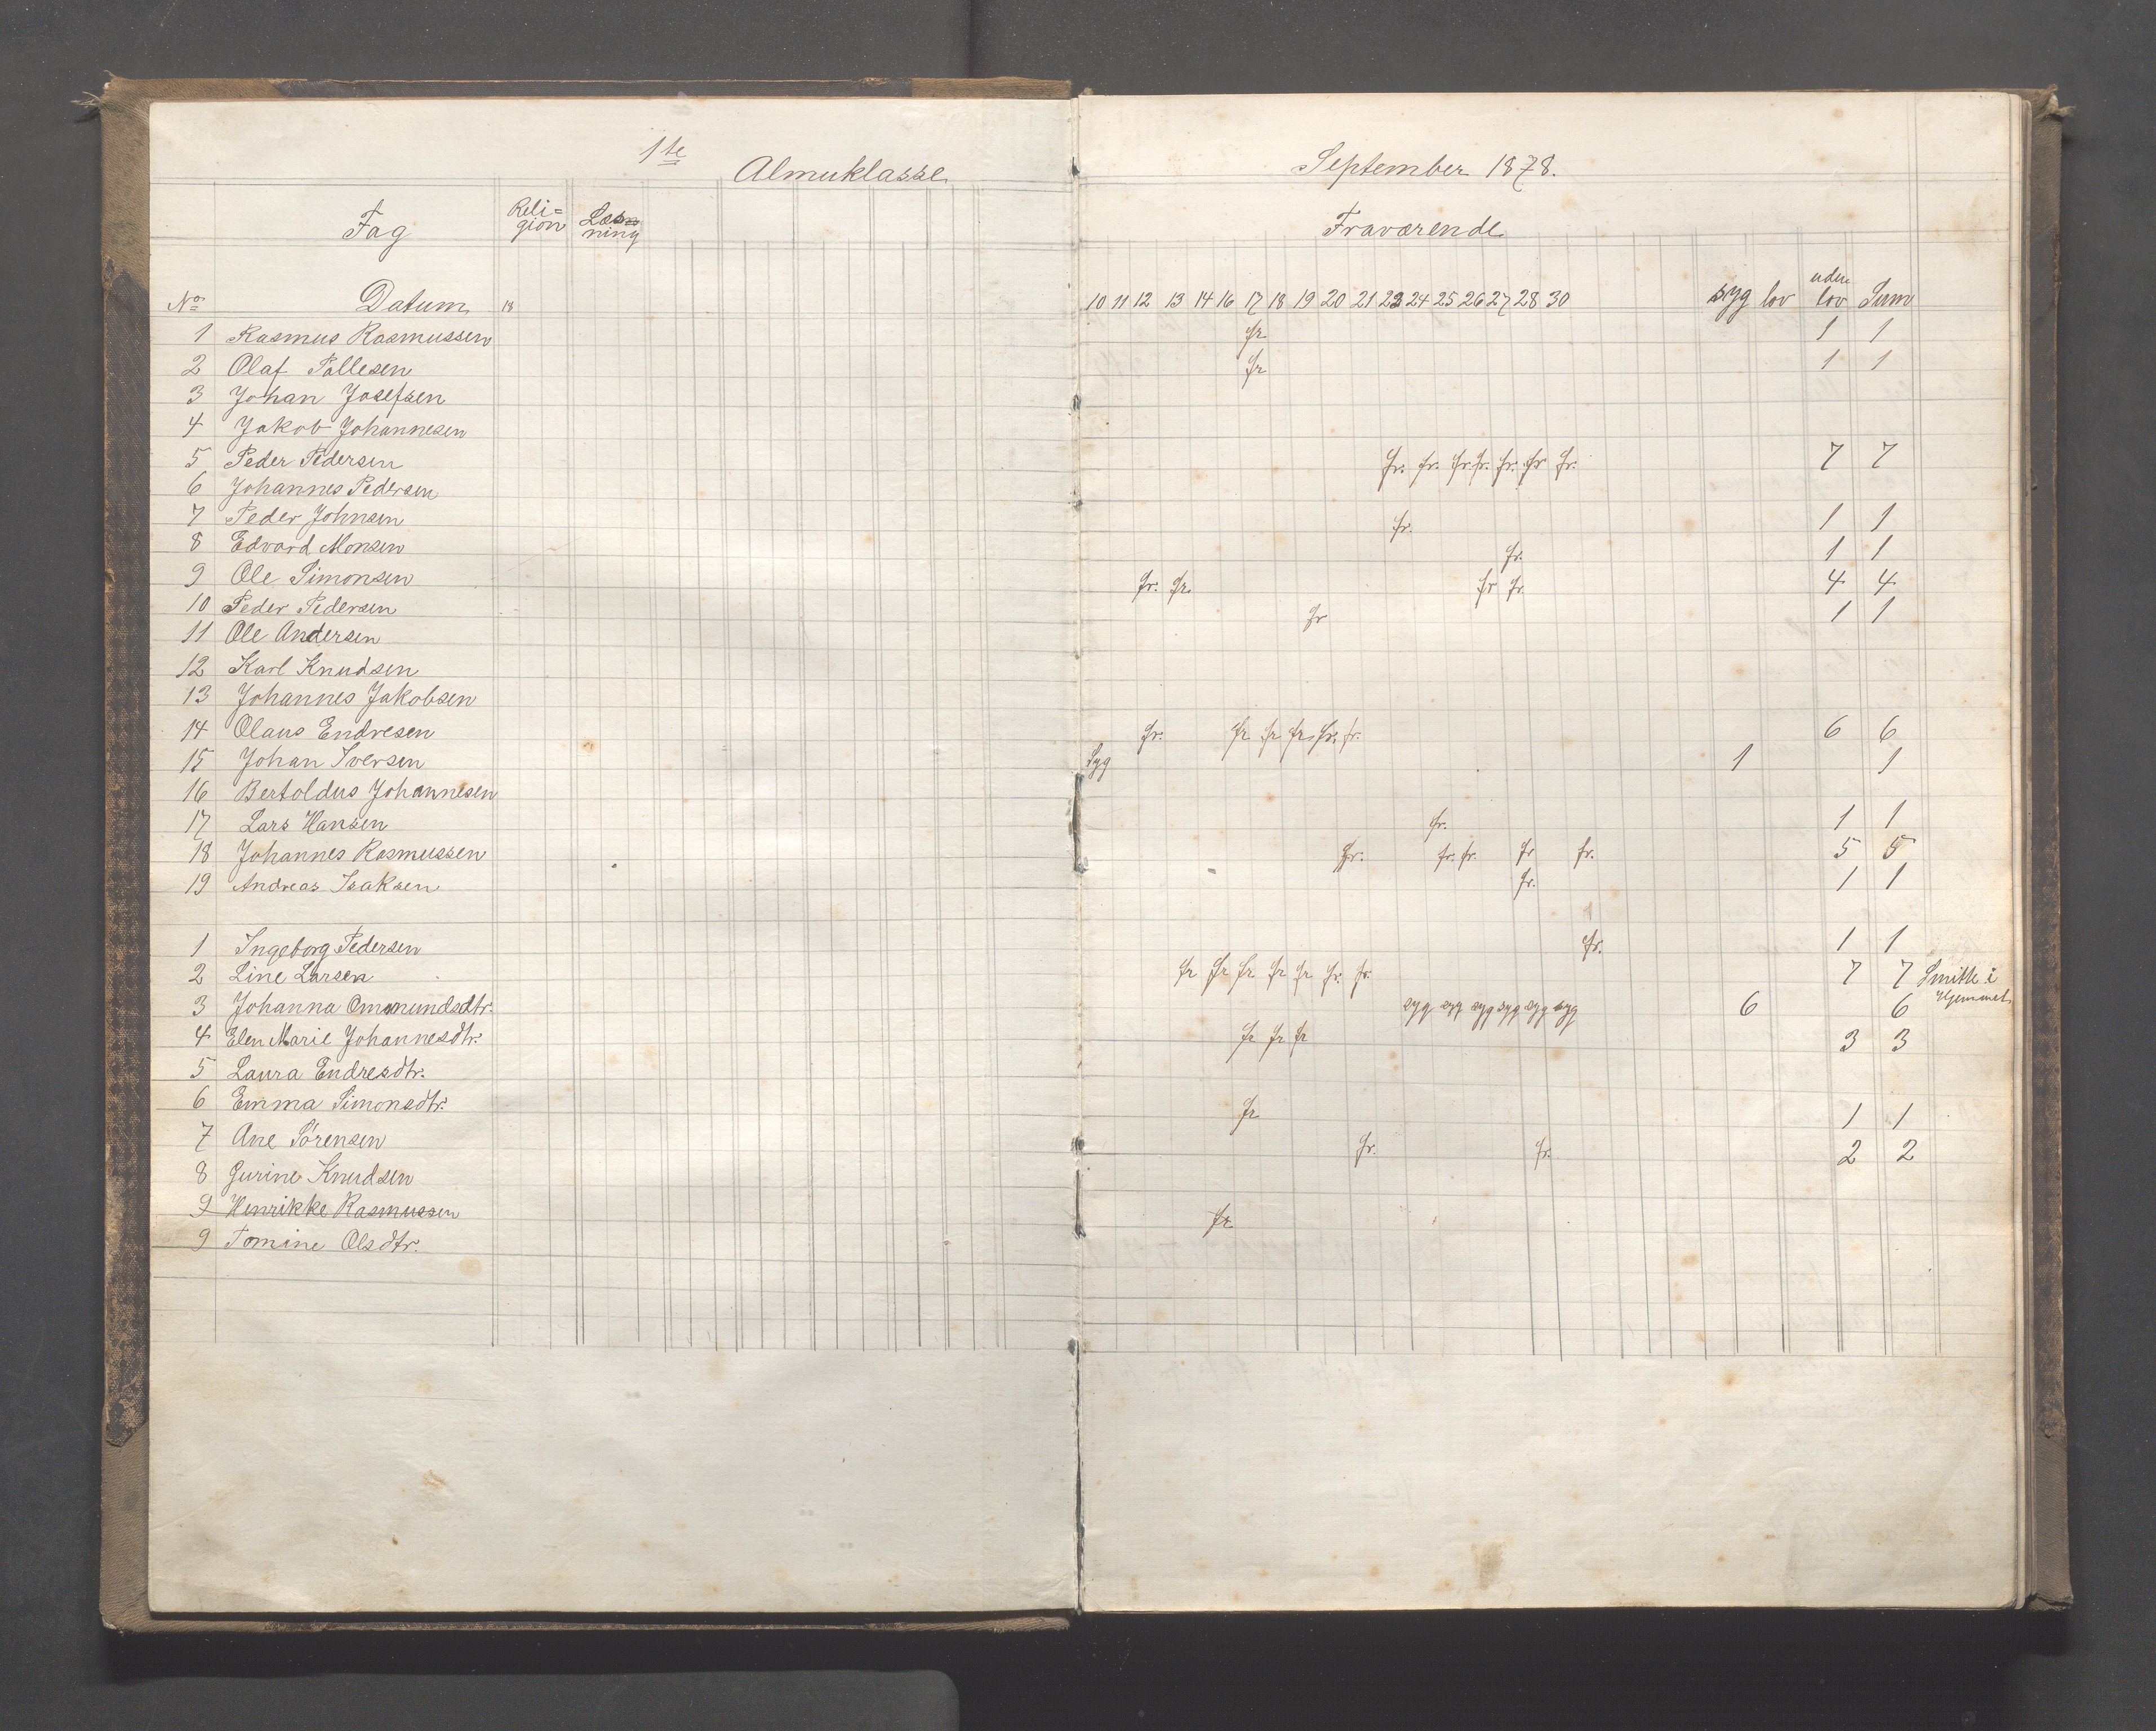 1te Almuklasse
Fag Reli=gion Læsning
No Datum 18
1 Rasmus Rasmussen
2 Olaf Pallesen
3 Johan Josefsen
4 Jakob Johannesen
5 Peder Pedersen
6 Johannes Pedersen
7 Peder Johnsen
8 Edvard Monsen
9 Ole Simonsen
10 Peder Pedersen
11 Ole Andersen
12 Karl Knudsen
13 Johannes Jakobsen
14 Olaus Endresen
15 Johan Iversen
16 Bertoldus Johannesen
17 Lars Hansen
18 Johannes Rasmussen
19 Andreas Isaksen
1 Ingeborg Pedersen
2 Line Larsen
3 Johanna Ommundsdtr.
4 Elen Marie Johannesdtr.
5 Laura Endresdtr.
6 Emma Simonsdtr.
7 Ane Sörensen
8 Gurine Knudsen
9 Henrikke Rasmussen
9 Tomine Olsdtr.
September 1878.
Fraværende
10 11 12 13 14 16 17 18 19 20 21 23 24 25 26 27 28 30 syg lov uden lov Sum
fr 1 1
fr 1 1
fr. fr. fr fr. fr. fr fr. 7 7
fr. 1 1
fr. 1 1
fr. fr. fr fr. 4 4
fr 1 1
fr. fr fr fr. fr. fr. 6 6
Syg 1 1
fr. 1 1
fr. fr. fr. fr fr. 5 5
fr. 1 1
fr. 1 1
fr fr fr fr fr fr. fr. 7 7 Smitte i Hjemmet
syg syg syg syg syg syg 6 6
fr fr fr 3 3
fr 1 1
fr. fr. 2 2
fr